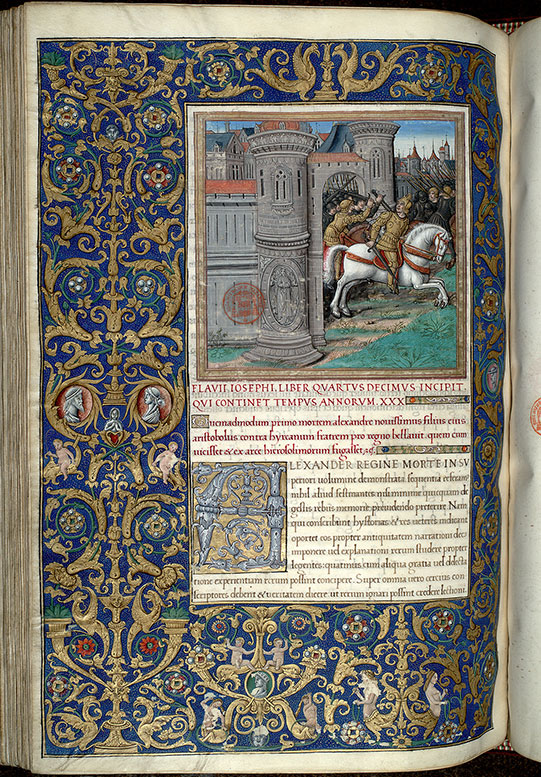 FLAVII. IOSEPHI. LIBER QVARTVS DECIMVS INCIPIT.
QVI CONTINET TEMPVS ANNORVM. XXX
Quemadmodum primo mortem alexandre nouissimus filius eius
aristobolus contra hyrcanum fratrem pro regno bellauit. quem cum
uicisset & ex arce hierosolimorum fugasset,
ALEXANDER REGINE MORTE IN SV
periori uolumine demonstrata sequentia referam
nihil aliud festinantes nisi minime quicquam de
gestis rebus memorie preuidendo preterire. Nam
qui conscribunt hystorias & res ueteres indicant
oportet eos propter antiquitatem narrationi de
imponere uel explanationi rerum studere propter
legentes: quatinus cum aliqua gratia uel delecta
tione experientiam rerum possint concipere. Super omnia uero certius con
scriptores debent & ueritatem dicere. ut rerum ignari possint credere lectioni.